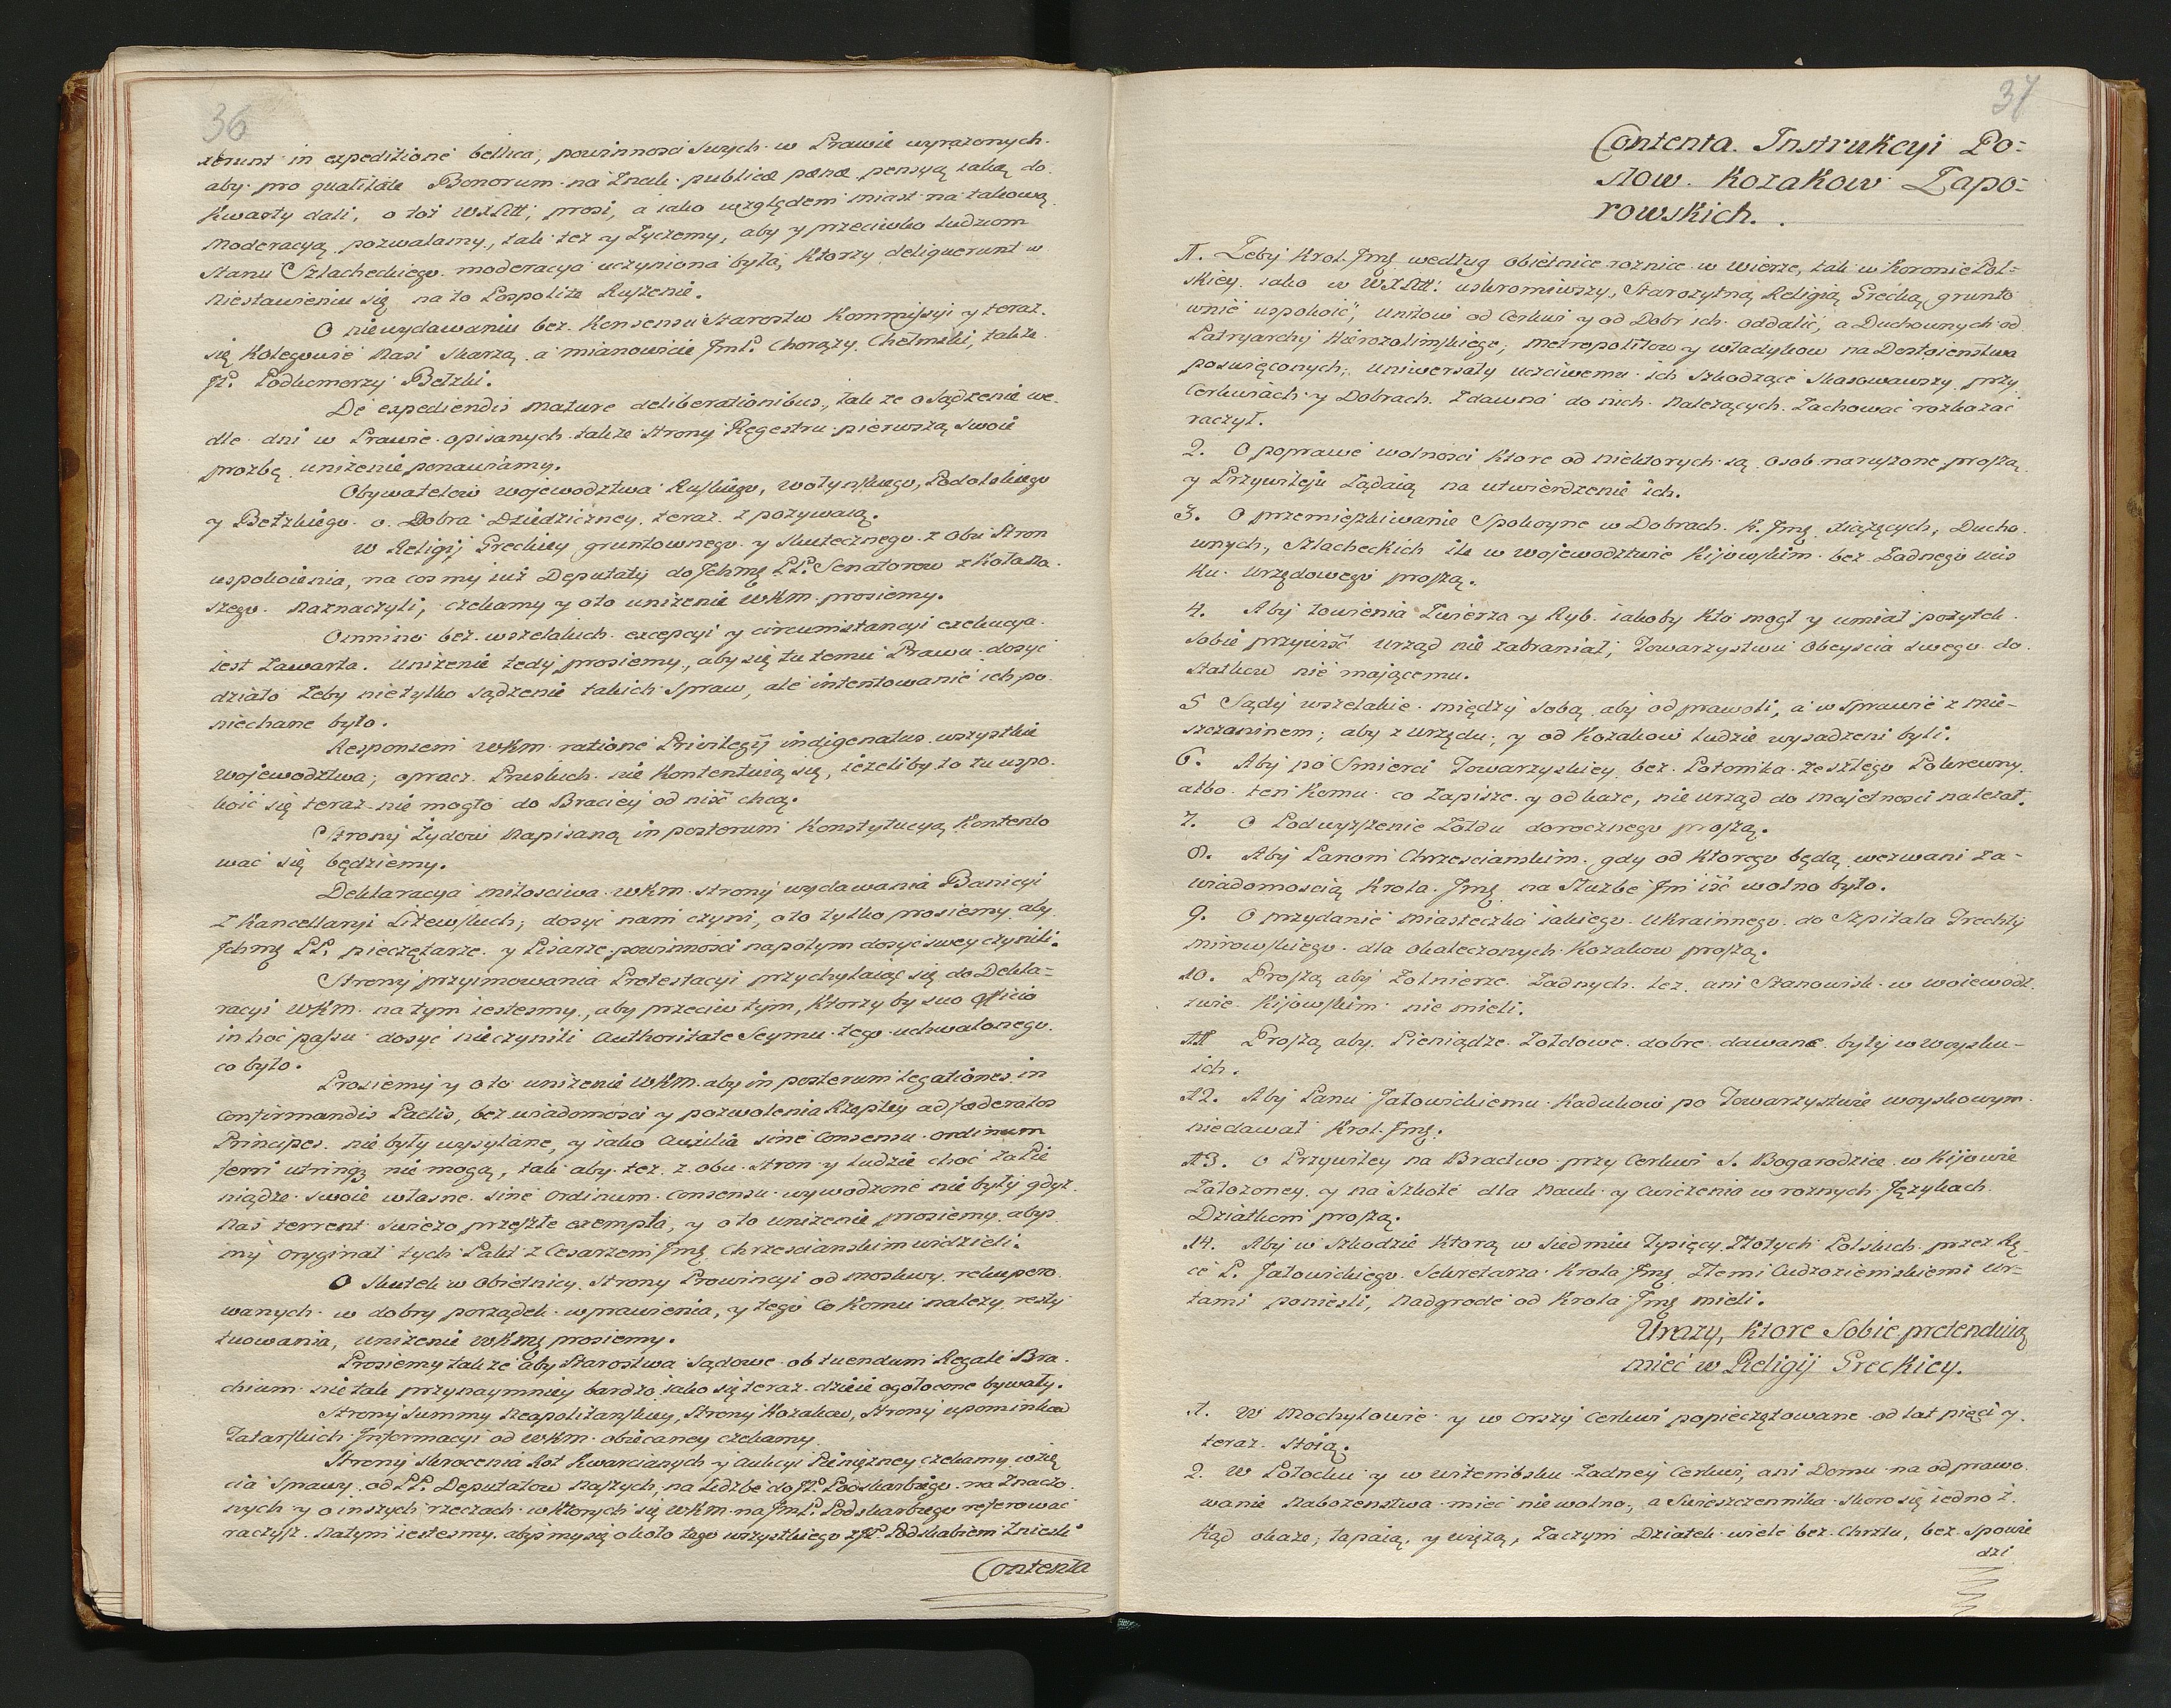 36
xerunt in expeditione bellica, powinnosci swych w Prawie wyrażonych
aby pro qualitate Bonorum na Znak publicæ pænæ pensyą taką do
Kwarty dali, o toż WXLitt; prosi, a iako względem miast na takową
Moderacyą pozwalamy, tak też y Życzemy, aby y przeciwko ludziom
Stanu Szlacheckiego moderacya uczyniona była, Ktorzy deliquerunt w
Niestawieniu się na to Pospolite Ruszenie.
O niewydawaniu bez Konsensu Starostw Kommissyi y teraz
się Kolegowie Nasi skarżą, a mianowicie JmP. Chorąży Chełmski, także
JP. Podkomorzy Bełzki.
De expediendis mature deliberationibus, tak ze osądzenie we-
dle dni w Prawie opisanych także strony Regestru pierwszą swoie
prozbę uniżenie ponawiamy.
Obywatelow Wojewodztwa Ruskiego, Wołynskiego, Podolskiego
y Bełzkiego o Dobra Dziedziczney teraz z pozywaią.
W Religij Greckiey gruntownego y skutecznego z obu Stron
uspokoienia, na cosmy iuż Deputaty do Ichmę PP. Senatorow z Koła Na-
szego Naznaczyli, czekamy y oto uniżenie WKM prosiemy.
Omnino bez wszelakich excepcyi y circumstancyi exekucya
iest Zawarta. Uniżenie tedy prosiemy, aby się tu temu Prawu dosyć
działo żeby nietylko sądzenie takich Spraw, ale intentowanie ich po-
niechane było.
Responsem WKM ratione Privilegij indigenatus wszystkie
Wojewodztwa, opracz Pruskich nie Kontentuią się, ieżeliby to tu uspo-
koić się teraz nie mogło do Braciey od nieść chcą.
Strony Żydow Napisaną in posterum Konstytucyą Kontento
wać się będziemy.
Deklaracya miłosciwa WKM strony wydawania Banicyi
z Kancellaryi Litewskich, dosyć nam czyni, oto tylko prosiemy aby
Ichmę PP. pieczętarze y Pisarze powinnosci napotym dosyć swey czynili.
Strony przyimowania Protestacyi przychylaiąc się do Dekla=
racyi WKM na tym iestesmy, aby przeciw tym, Ktorzy by suo officio
in hoc passu dosyć nie czynili Authoritate Seymu tego uchwalonego
co było.
Prosiemy y oto uniżenie WKM aby in posterum legationes in
confirmandis Pactis, bez wiadomosci y pozwolenia Rzeptey ad fœderatos
Principes nie były wysyłane, y iako Auxilia sine Consensu ordinum
ferri utrinq3 nie mogą, tak aby tez z obu stron y ludzie choć za Pie
niądze swoie własne sine ordinum consensu wywodzone nie były gdyż
Nas terrent swieżo przeszłe exempla, y oto uniżenie prosiemy abys
my oryginał tych Pakt z Cesarzem Jmę Chrzescianskim widzieli.
O skutek w obietnicy Strony Prowincyi od Moskwy rekupero
wanych w dobry porządek wprawienia, y tego co Komu należy resty
tuowania, uniżenie WKMę prosiemy.
Prosiemy także aby Starostwa Sądowe ob tuendum Regale Bra-
chium nie tak przynaymniey bardzo iako się teraz dzieie ogołocone bywały.
Strony Summy Neapolitańskiey, Strony Kozakow, Strony upominkow
Tatarskich Informacyi od WKM obiecaney czekamy.
Strony skrocenia Rot Kwarcianych y Aukcyi Pieniężney czekamy wzię
cia Sprawy od PP. Deputatow Naszych, na liczbe do JP. Podskarbiego na Znaczo
nych y o inszych rzeczach w ktorych się WKM na JmP. Podskarbiego referować
raczysz. Natym iestesmy abysmy się około tego wszystkiego z JP. Podskabiem Zniesli
Contenta
37
Contenta Instrukcyi Po=
słow Kozakow Zapo=
rowskich.
1. Żeby Krol Jmę według obietnice roznice w Wierze, tak w Koronie Pol=
skiey iako w WXLitt: uskromiwszy, Starożytną Religią Grecką grunto
wnie uspokoić, Unitow od Cerkwi y od Dobr ich oddalić, a Duchownych od
Patryarchy Hierozolimskiego, Metropolitow y Władykow na Dostoienstwa
poswięconych, Uniwersały uczciwemu ich Szkodzące Skasowawszy przy
Cerkwiach y Dobrach Zdawna do nich Należących Zachować rozkazać
raczył.
2. O poprawe wolnosci Ktore od niektorych są Osob naruszone proszą
y Przywileju Żądaią na utwierdzenie ich.
3. O przemieszkiwanie Spokoyne w Dobrach K. Jmę Xiążęcych, Ducho
wnych, Szlacheckich ile w Wojewodztwie Kijowskim bez Żadnego ucis
ku Urzędowego proszą.
4. Aby łowienia Zwierza y Ryb iakoby Kto mogł y umiał pożytek
sobie przywieść Urząd nie zabraniał, Towarzystwu Obeyscia swego do
statkow nie mającemu.
5 Sądy wszelakie między sobą aby odprawoli, a w Sprawie z Mie-
szczaninem, aby z Urzędu, y od Kozakow ludzie wysadzeni byli.
6. Aby po Smierci Towarzyskiey bez Potomka Zeszłego Pokrewny
albo ten Komu co Zapisze y odkaże, nie Urząd do Majetnosci należał.
7. O Podwyższenie Żołdu dorocznego proszą.
8. Aby Panom Chrzescianskim gdy od Ktorego będą wezwani za-
wiadomoscią Krola Jmę na Służbe Jm iść wolno było.
9. O przydanie miasteczka iakiego Ukrainnego do Szpitala Trechty
mirowskiego dla okaleczonych Kozakow proszą.
10. Proszą aby Żołnierze Żadnych Leż ani Stanowisk w Woiewodz
twie Kijowskim nie mieli.
11 Proszą aby Pieniądze Żołdowe dobre dawane były w Woysku-
ich.
12. Aby Panu Jałowickiemu Kadukow po Towarzystwie woyskowym
niedawał Krol Jmę.
13. O Przywiley na Bractwo przy Cerkwi S. Bogarodzice w Kijowie
Założoney y na Szkołe dla Nauk y Cwiczenia w roznych Językach
Dziatkom proszą.
14. Aby w Szkodzie Ktorą w Siedmiu Tysięcy Złotych Polskich przez Rę-
ce P. Jałowickiego Sekretarza Krola Jmę Złemi Cudzoziemskiemi Ur-
tami poniesli, Nadgrode od Krola Jmę mieli.
Urazy, Ktore Sobie pretenduią
mieć w Religij Greckiey.
1. W Mochylowie y w Orszy Cerkwi popieczętowane od lat pięci y
teraz Stoią.
2. W Połocku y w Witembsku Żadney Cerkwi, ani Domu na odprawo
wanie Nabożenstwa mieć niewolno, a Swieszczennika skoro się iedno z
kąd okaże, łapaią y więżą, Zaczym Dziatek wiele bez Chrztu, bez Spowie
dzi